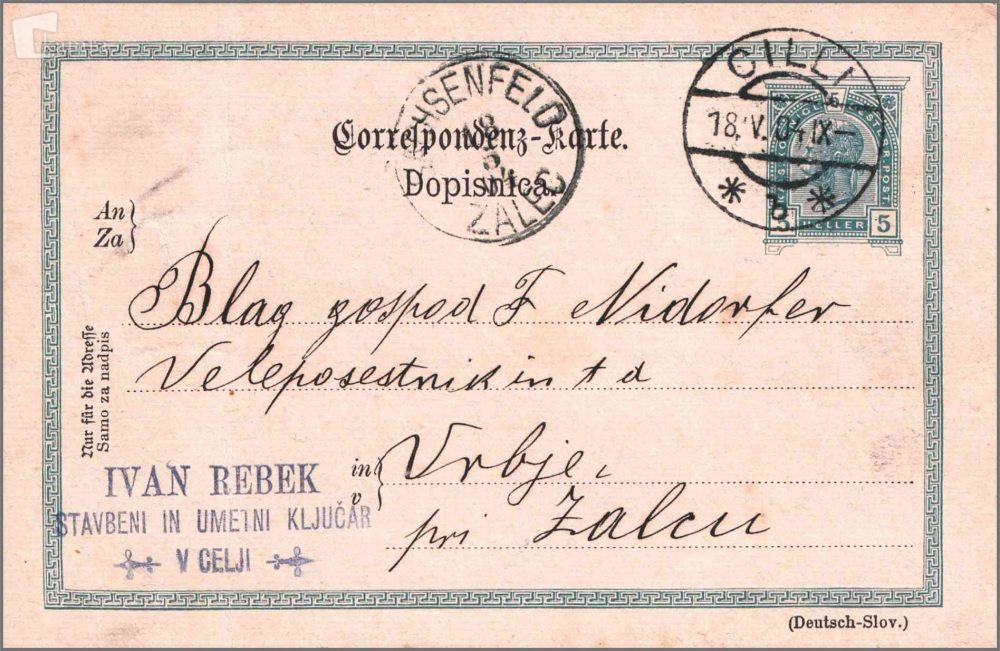 CILLI
18.V.04.IX-
5
5 HELLER 5
SACHSENFELD
ŽALEC
Correspondenz-Karte.
Dopisnica.
An
Za
Blag gospod F Nidorfer
Veleposestnik in t d
Nur für die Adresse
Samo za nadpis
in
v
Vrbje,
pri Žalcu
IVAN REBEK
STAVBENI IN UMETNI KLJUČAR
V CELJI
(Deutsch-Slov.)